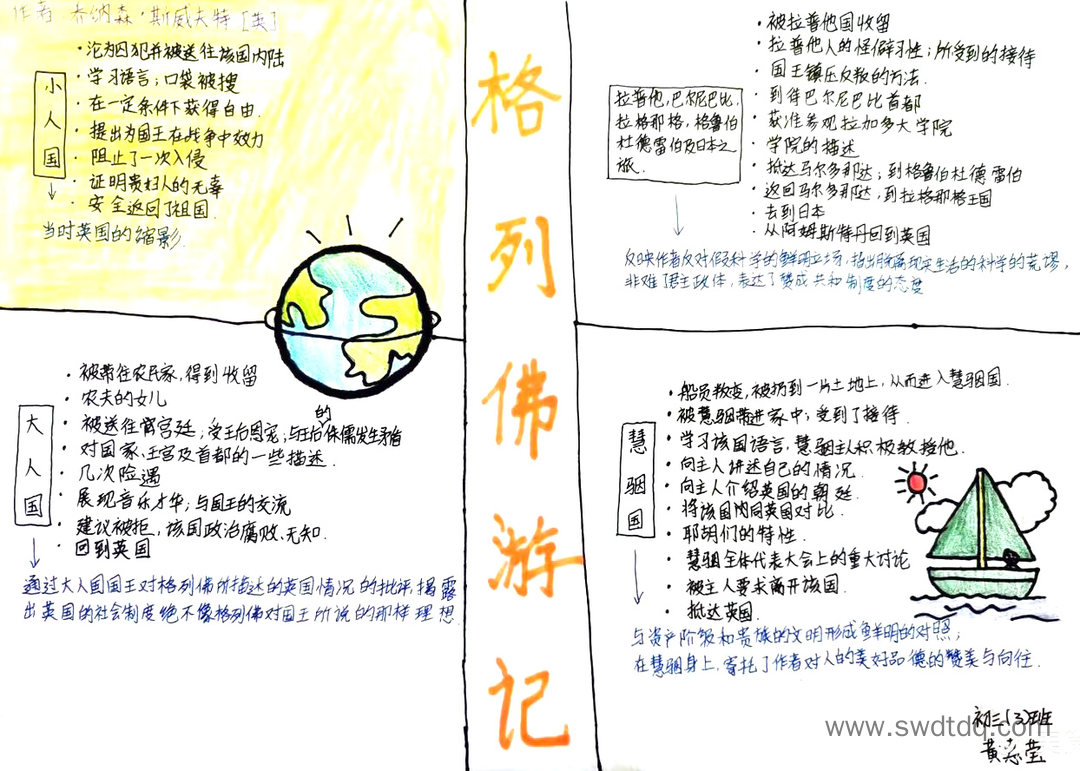 作者 乔纳森·斯威夫特 [英]
小人国
·沦为囚犯并被送往该国内陆
·学习语言；口袋被搜
·在一定条件下获得自由.
·提出为国王在战争中效力
·阻止了一次入侵
·证明贵妇人的无辜
·安全返回了祖国.
当时英国的缩影.
格列佛游记
拉普他,巴尔尼巴比,
拉格那格,格鲁伯
杜德雷伯及日本之
旅.
·被拉普他国收留
·拉普他人的怪僻习性；所受到的接待
·国王镇压反叛的方法.
·到待巴尔尼巴比首都
·获准参观拉加多大学院
·学院的描述
·抵达马尔多那达；到格鲁伯杜德雷伯
·返回马尔多那达,到拉格那格王国
·去到日本
·从阿姆斯特丹回到英国
反映作者反对假科学的鲜明立场,指出脱离现实生活的科学的荒谬,
非难了君主政体,表达了赞成共和制度的态度
大人国
·被带住农民家,得到收留
·农夫的女儿
·被送住宫廷；受王后恩宠；与王后的侏儒发生矛盾
·对国家、王宫及首都的一些描述.
·几次险遇
·展现音乐才华；与国王的交流
·建议被拒，该国政治腐败、无知.
·回到英国
通过大人国国王对格列佛所描述的英国情况的批评,揭露
出英国的社会制度绝不像格列佛对国王所说的那样理想.
慧骃国
·船员叛变,被扔到一片土地上,从而进入慧骃国.
·被慧骃带进家中；受到了接待.
·学习该国语言,慧骃主人积极教授他.
·向主人讲述自己的情况.
·向主人介绍英国的朝廷.
·将该国内同英国对比.
·耶胡们的特性.
·慧骃全体代表大会上的重大讨论
·被主人要求离开该国.
·抵达英国.
与资产阶级和贵族的文明形成鲜明的对照；
在慧骃身上,寄托了作者对人的美好品德的赞美与向往.
初三(3)班
黄志莹
www.swdtdq.com